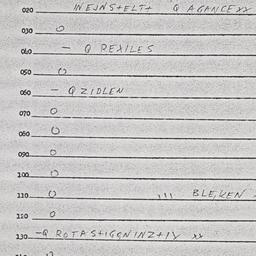 020 INEJNS+ELT+ Q AGANCEXX
030 O
040 — Q REXILES
050 O
060 — Q ZIDLEN
070 O
080 O
090 O
100 O
110 O ,,, BLEKEN
120 O
130 —Q ROTAS+IGENINZ+IY XX